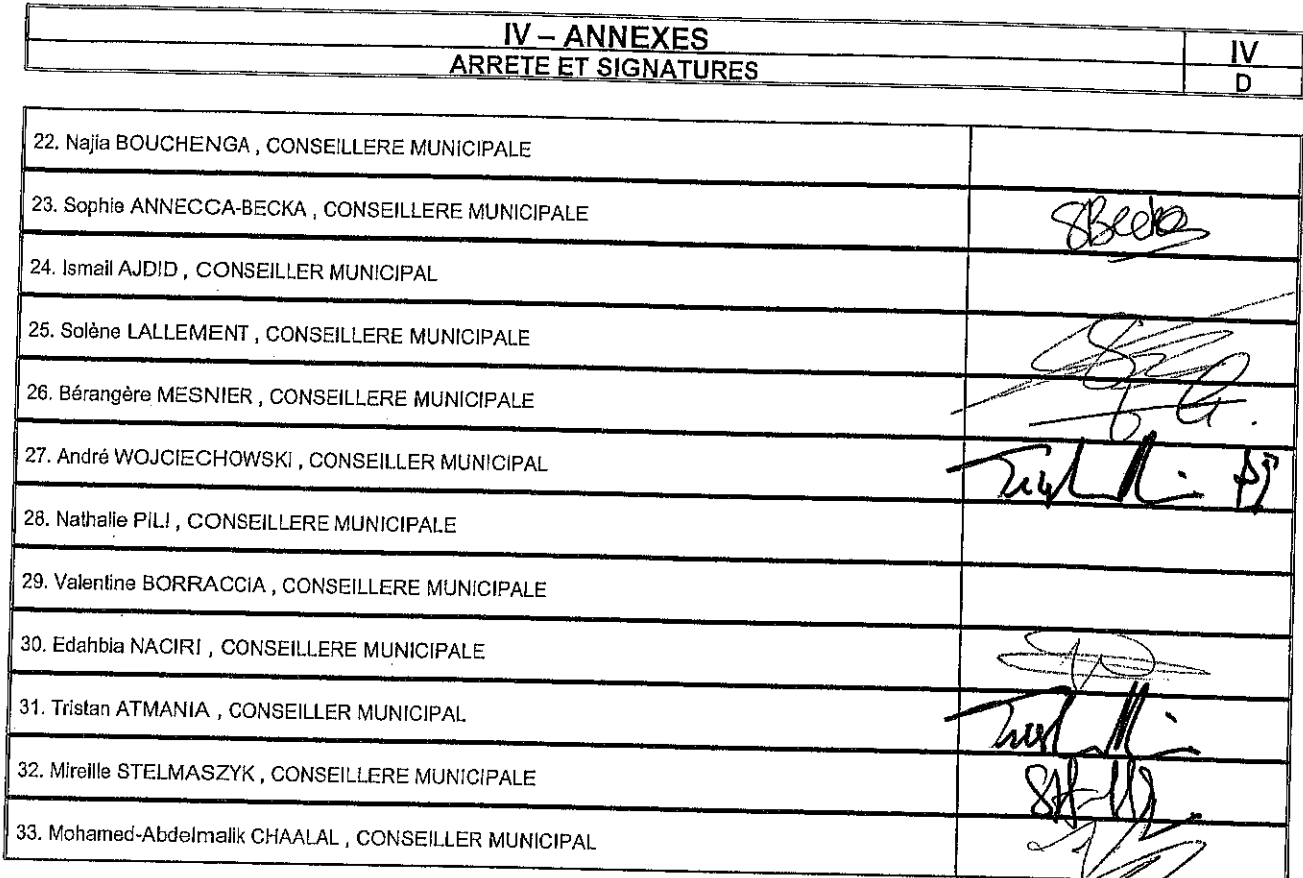 IV – ANNEXES
IV
ARRETE ET SIGNATURES
D
22. Najia BOUCHENGA , CONSEILLERE MUNICIPALE
23. Sophie ANNECCA-BECKA , CONSEILLERE MUNICIPALE
24. Ismail AJDID , CONSEILLER MUNICIPAL
25. Solène LALLEMENT , CONSEILLERE MUNICIPALE
26. Bérangère MESNIER , CONSEILLERE MUNICIPALE
27. André WOJCIECHOWSKI , CONSEILLER MUNICIPAL
28. Nathalie PILI , CONSEILLERE MUNICIPALE
29. Valentine BORRACCIA , CONSEILLERE MUNICIPALE
30. Edahbia NACIRI , CONSEILLERE MUNICIPALE
31. Tristan ATMANIA , CONSEILLER MUNICIPAL
32. Mireille STELMASZYK , CONSEILLERE MUNICIPALE
33. Mohamed-Abdelmalik CHAALAL , CONSEILLER MUNICIPAL